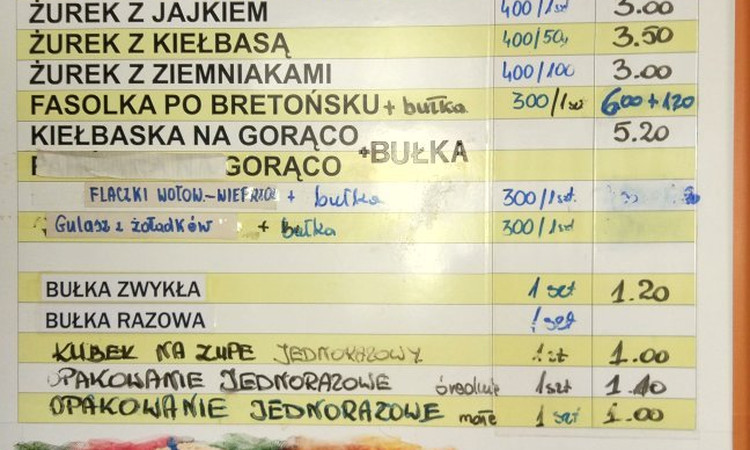 ŻUREK Z JAJKIEM 400/1szt 3.00
ŻUREK Z KIEŁBASĄ 400/50g 3.50
ŻUREK Z ZIEMNIAKAMI 400/100 3.00
FASOLKA PO BRETOŃSKU + bułka 300/1szt 6.00+1.20
KIEŁBASKA NA GORĄCO +BUŁKA 5.20
GORĄCO
FLACZKI WOŁOW.-WIEPRZO + bułka 300/1szt.
Gulasz z żołądków + bułka 300/1szt
BUŁKA ZWYKŁA 1 szt 1.20
BUŁKA RAZOWA 1szt
KUBEK NA ZUPE JEDNORAZOWY 1szt 1.00
OPAKOWANIE JEDNORAZOWE średnie 1szt 1.10
OPAKOWANIE JEDNORAZOWE małe 1 szt 1.00